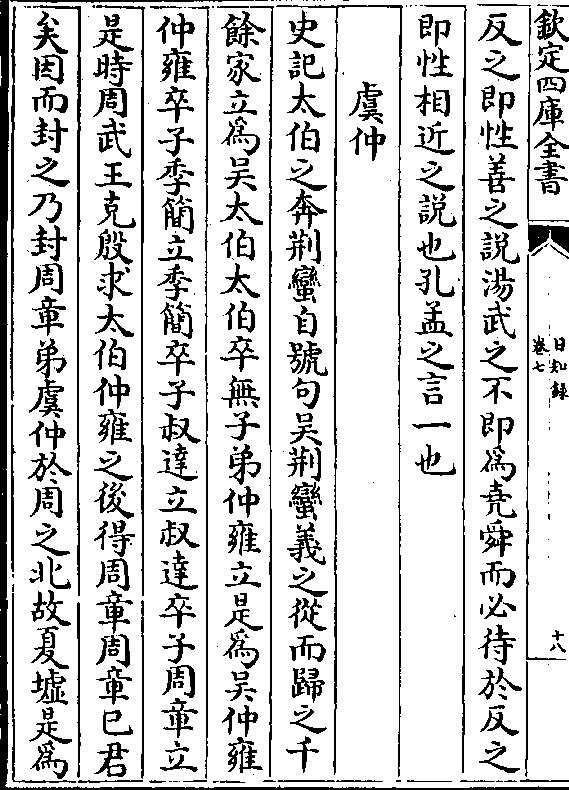 欽定四庫全書
日知錄
卷七
十八
反之即性善之說湯武之不即為堯舜而必待於反之
即性相近之說也孔孟之言一也
虞仲
史記太伯之奔荆蠻自號句吳荆蠻義之從而歸之千
餘家立為吳太伯太伯卒無子弟仲雍立是為吳仲雍
仲雍卒子季簡立季簡卒子叔達立叔達卒子周章立
是時周武王克殷求太伯仲雍之後得周章周章已君
矣因而封之乃封周章弟虞仲於周之北故夏墟是為